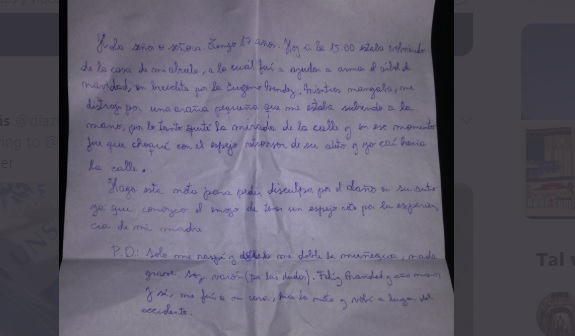 Hola señor o señora. Tengo 17 años. Hoy a las 15:00 estaba volviendo
de la casa de mi abuela, a la cual fui a ayudar a armar el árbol de
navidad, en bicicleta por la Eugenio Garzón. Mientras manejaba, me
distraje por una araña pequeña que me estaba subiendo a la
mano, por lo tanto quité la mirada de la calle y en ese momento
fue que choqué con el espejo retrovisor de su auto y yo caí hacia
la calle.
Hago esta nota para pedir disculpas por el daño en su auto
ya que conozco el enojo de tener un espejo roto por la experien
cia de mi madre
P.D: Solo me raspé y me doblé la muñeca, nada
grave. Soy varón (por las dudas). Feliz Navidad y año nuevo
Y sí, me fui a mi casa, hice la nota y volví a lugar del
accidente.
Tal